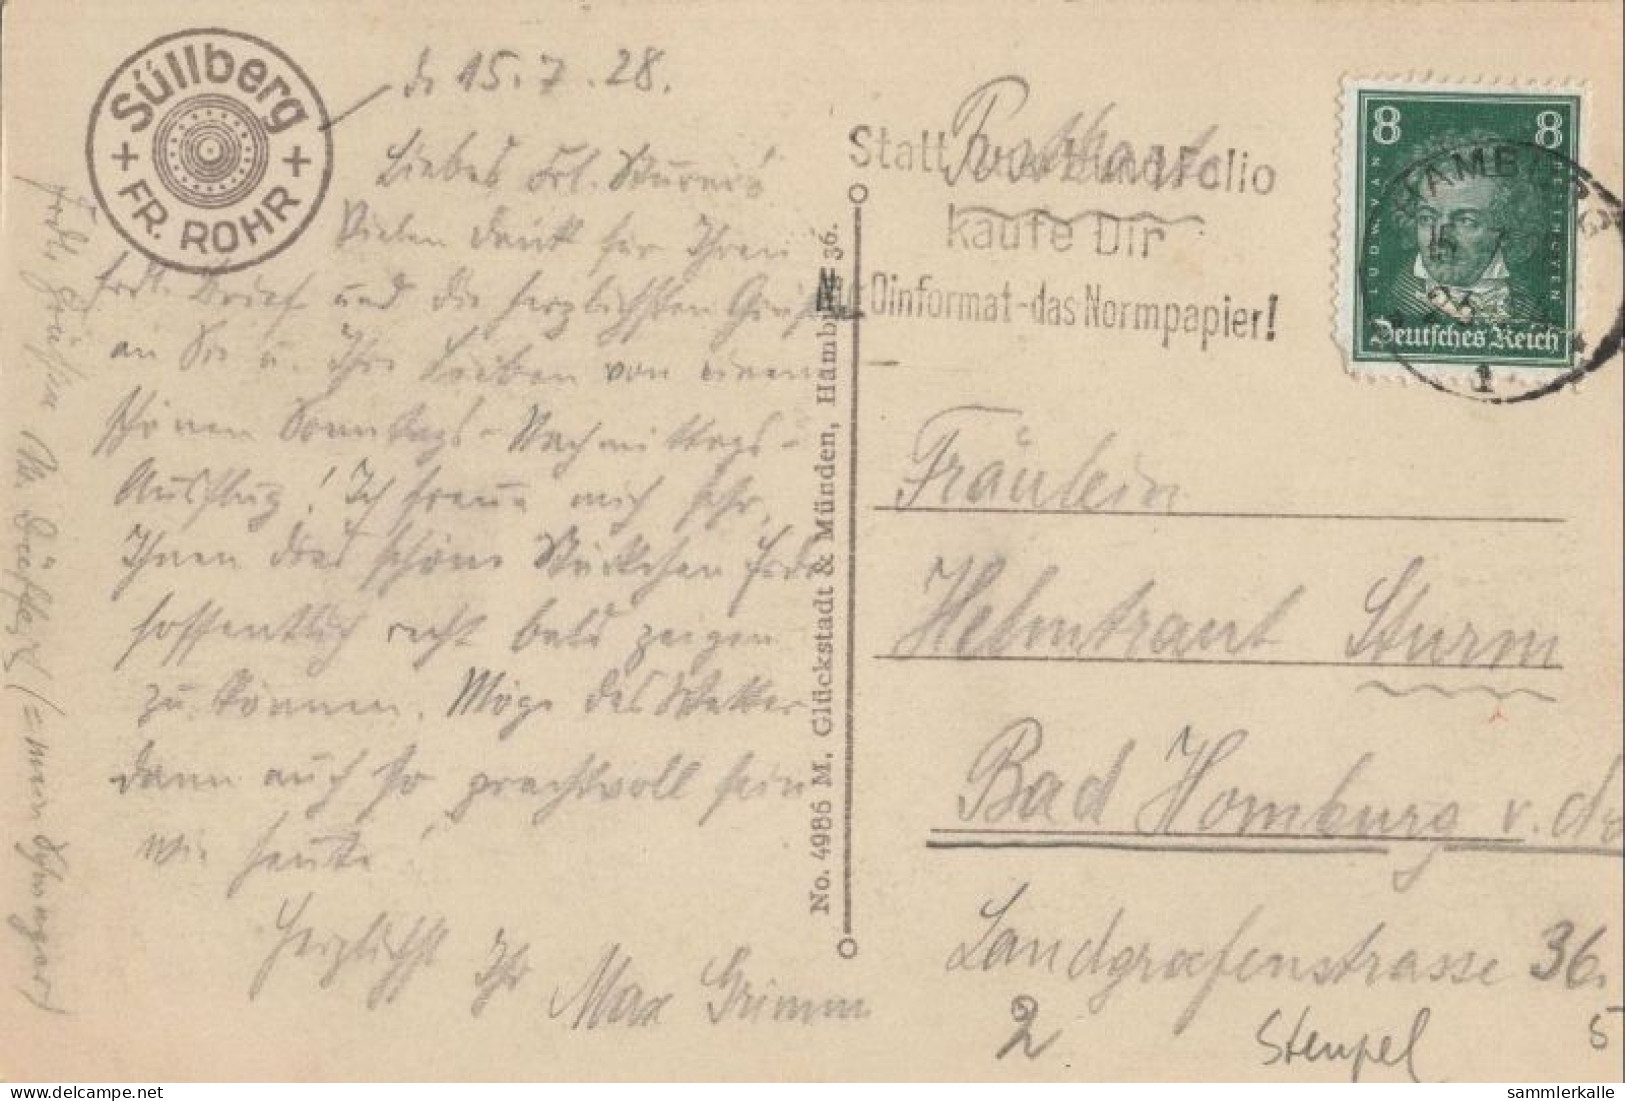 Süllberg
FR. ROHR
d. 15.7.28.
Liebes Frl. Sturm!
Vielen Dank für Ihren
frdl. Brief und die herzlichsten Grüße
an Sie u. Ihre Lieben von einem
schönen Sonntags-Nachmittags-
Ausflug! Ich freue mich sehr,
Ihnen dies schöne Stückchen Erde
hoffentlich recht bald zeigen
zu können. Möge das Wetter
dann auch so prachtvoll sein
wie heute!
Herzlichst Ihr Max Grimm
Frdl. Grüße
(= mein Schwager)
No. 4986 M. Glückstadt & Münden, Hamburg 36.
Postkarte
Statt Folio
kaufe Dir
Dinformat-das Normpapier!
8 8
LUDWIG VAN BEETHOVEN
Deutsches Reich
HAMBURG
1
Fräulein
Helmtraut Sturm
Bad Homburg v. d.
Landgrafenstrasse 36.
2
Stempel
5
sammlerkalle